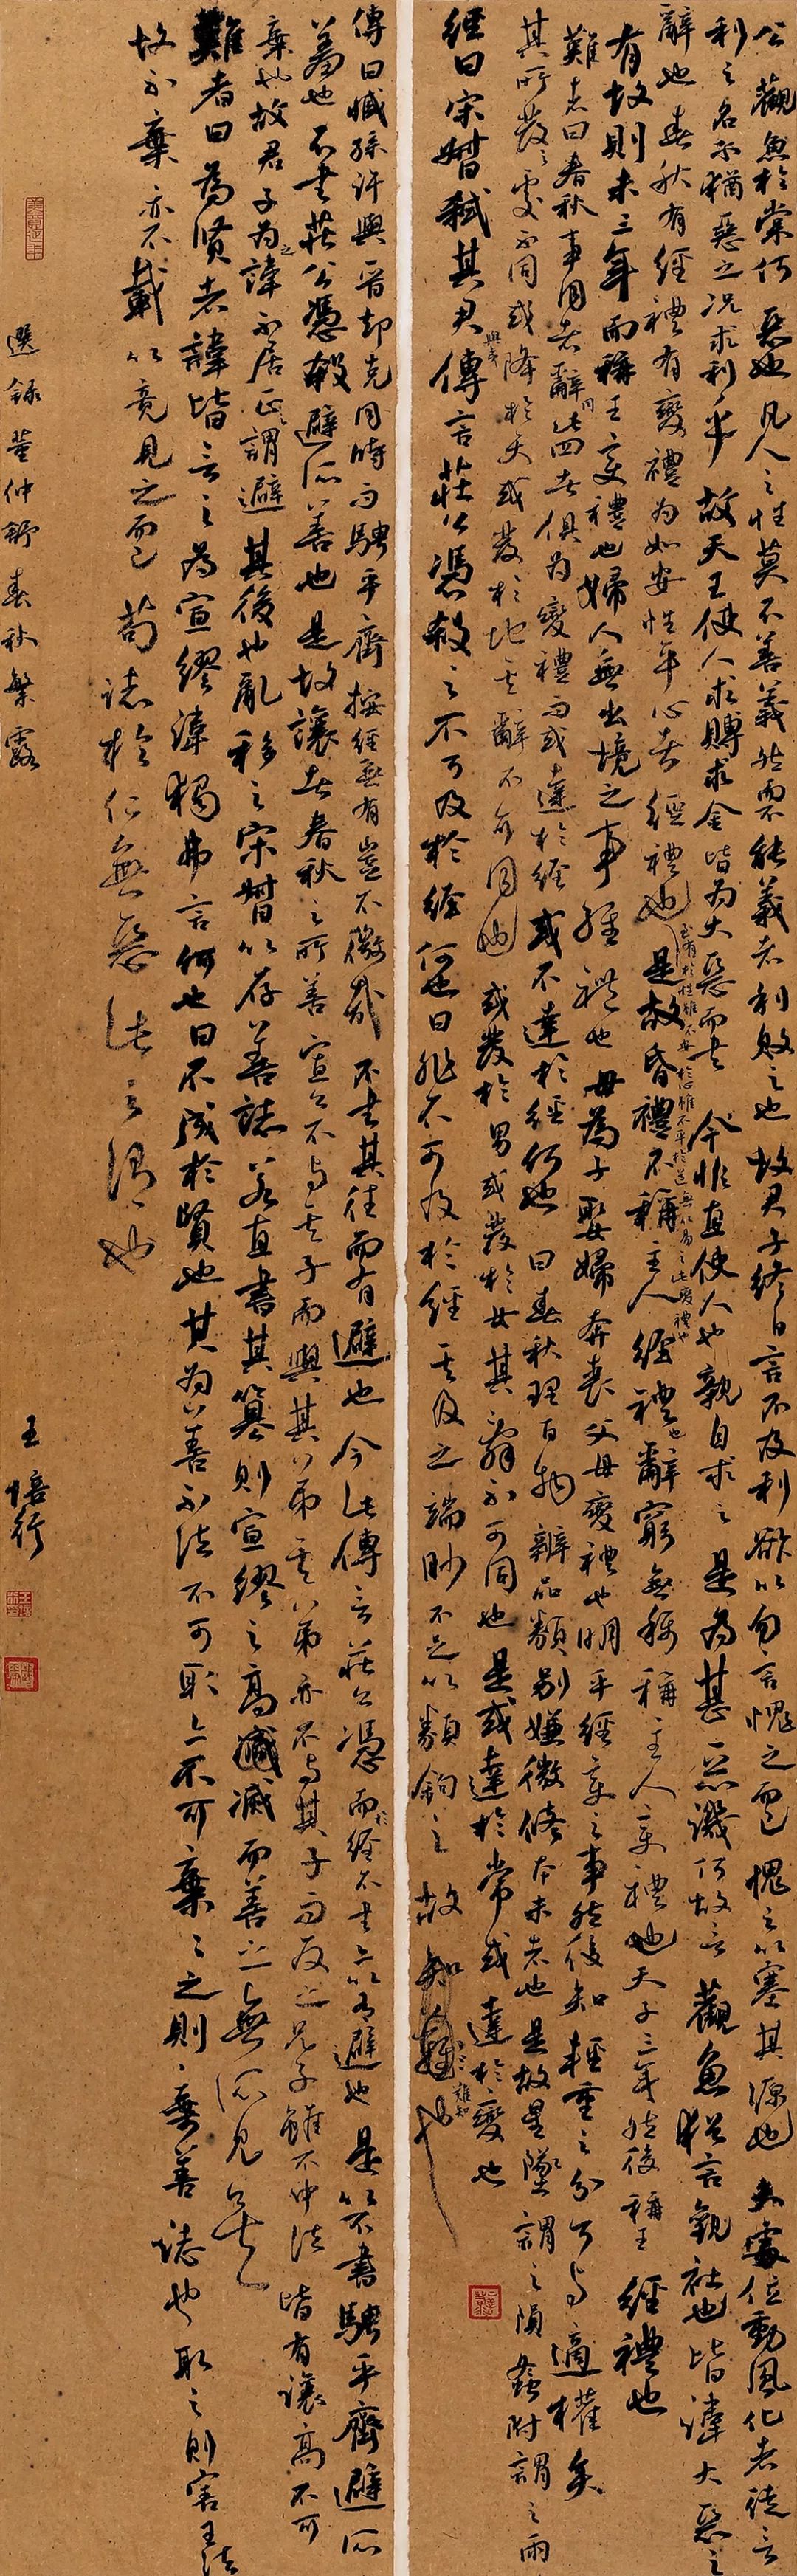 公觀魚於棠何惡也凡人之性莫不善義然而不能義者利敗之也故君子終日言不及利欲以勿言愧之而已愧之以塞其源也夫處位動風化者徒言
利之名尔猶惡之況求利乎故天王使人求賻求金皆為大惡而書今非直使人也親自求之是為甚惡譏何故言觀魚猶言觀社也皆諱大惡之
辭也春秋有經禮有變禮為如安性平心者經禮也至有於性雖不安於心雖不平於道無以易之此變禮也是故昏禮不稱主人經禮也辭窮無稱稱主人變禮也天子三年然後稱王經禮也
有故則未三年而稱王變禮也婦人無出境之事經禮也母為子娶婦奔喪父母變禮也明乎經變之事然後知輕重之分可与適權矣
難者曰春秋事同者辭同此四者俱為變禮而或達於經或不達於經何也曰春秋理百物辨品類別嫌微修本末者也是故星墜謂之隕螽附謂之雨
其所發之處不同或降於天或發於地其辭不可同也或發於男或發於女其辭不可同也是或達於常或達於變也
經曰宋督弒其君傳言莊公馮殺之不可及於經何也曰非不可及於經其及之端眇不足以類鉤之故知難也
傳曰臧孫許與晉郤克同時而聘乎齊按經無有豈不微哉不書其往而有避也今此傳言莊公馮而於經不書亦以有避也是以不書聘乎齊避所
羞也不書莊公馮殺避所善也是故讓者春秋之所善宣公不与其子而與其弟其弟亦不与其子而反之兄子雖不中法皆有讓高不可
棄也故君子為之諱不居正之謂避其後也亂移之宋督以存善志若直書其篡則宣繆之高滅而善之無所見矣
難者曰為賢者諱皆言之為宣繆諱獨弗言何也曰不成於賢也其為善不法不可取亦不可棄棄之則棄善志也取之則害王法
故不棄亦不載以竟見之而已苟志於仁無惡此之謂也
選錄董仲舒春秋繁露
王培行